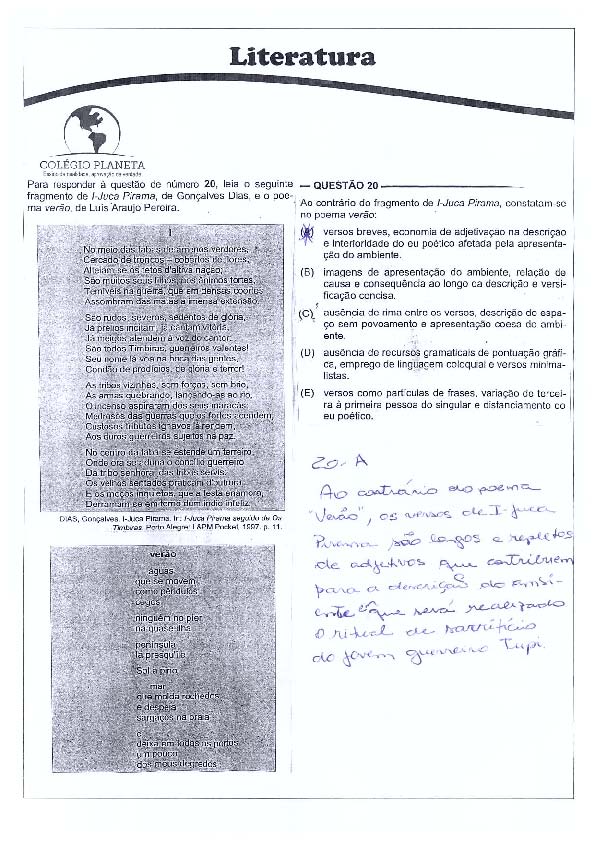 Literatura
COLÉGIO PLANETA
Para responder à questão de número 20, leia o seguinte
fragmento de I-Juca Pirama, de Gonçalves Dias, e o poe-
ma verão, de Luis Araujo Pereira.
I
No meio das tabas de amenos verdores,
Cercado de troncos – cobertos de flores,
Alteiam-se os tetos d'altiva nação;
São muitos seus filhos, nos ânimos fortes,
Temíveis na guerra, que em densas coortes
Assombram das matas a imensa extensão.
São rudos, severos, sedentos de glória,
Já prélios incitam, já cantam vitória,
Já meigos atendem à voz do cantor:
São todos Timbiras, guerreiros valentes!
Seu nome lá voa na boca das gentes,
Condão de prodígios, de glória e terror!
As tribos vizinhas, sem forças, sem brio,
As armas quebrando, lançando-as ao rio,
O incenso aspiraram dos seus maracás:
Medrosos das guerras que os fortes acendem,
Custosos tributos ignavos lá rendem,
Aos duros guerreiros sujeitos na paz.
No centro da taba se estende um terreiro,
Onde ora se aduna o concílio guerreiro
Da tribo senhora, das tribos servis:
Os velhos sentados praticam d'outrora,
E os moços inquietos, que a festa enamora,
Derramam-se em torno dum índio infeliz.
DIAS, Gonçalves. I-Juca Pirama. In: I-Juca Pirama seguido de Os
Timbiras. Porto Alegre: L&PM Pocket, 1997. p. 11.
verão
águas
que se movem
como pêndulos
cegos
ninguém no píer
na quase-ilha
península
la presqu'île
Sol a pino
mar
que molda rochedos
e despeja
sargaços na praia
e
deixa em todos os portos
um pouco
dos meus degredos
QUESTÃO 20
Ao contrário do fragmento de I-Juca Pirama, constatam-se
no poema verão:
(A) versos breves, economia de adjetivação na descrição
e interioridade do eu poético afetada pela apresenta-
ção do ambiente.
(B) imagens de apresentação do ambiente, relação de
causa e consequência ao longo da descrição e versi-
ficação concisa.
(C) ausência de rima entre os versos, descrição de espa-
ço sem povoamento e apresentação coesa do ambi-
ente.
(D) ausência de recursos gramaticais de pontuação gráfi-
ca, emprego de linguagem coloquial e versos minima-
listas.
(E) versos como partículas de frases, variação de tercei-
ra à primeira pessoa do singular e distanciamento do
eu poético.
20-A
Ao contrário do poema
"Verão", os versos de I-Juca
Pirama são longos e repletos
de adjetivos que contribuem
para a descrição do ambi-
ente que será realizado
o ritual de sacrifício
do jovem guerreiro Tupi.